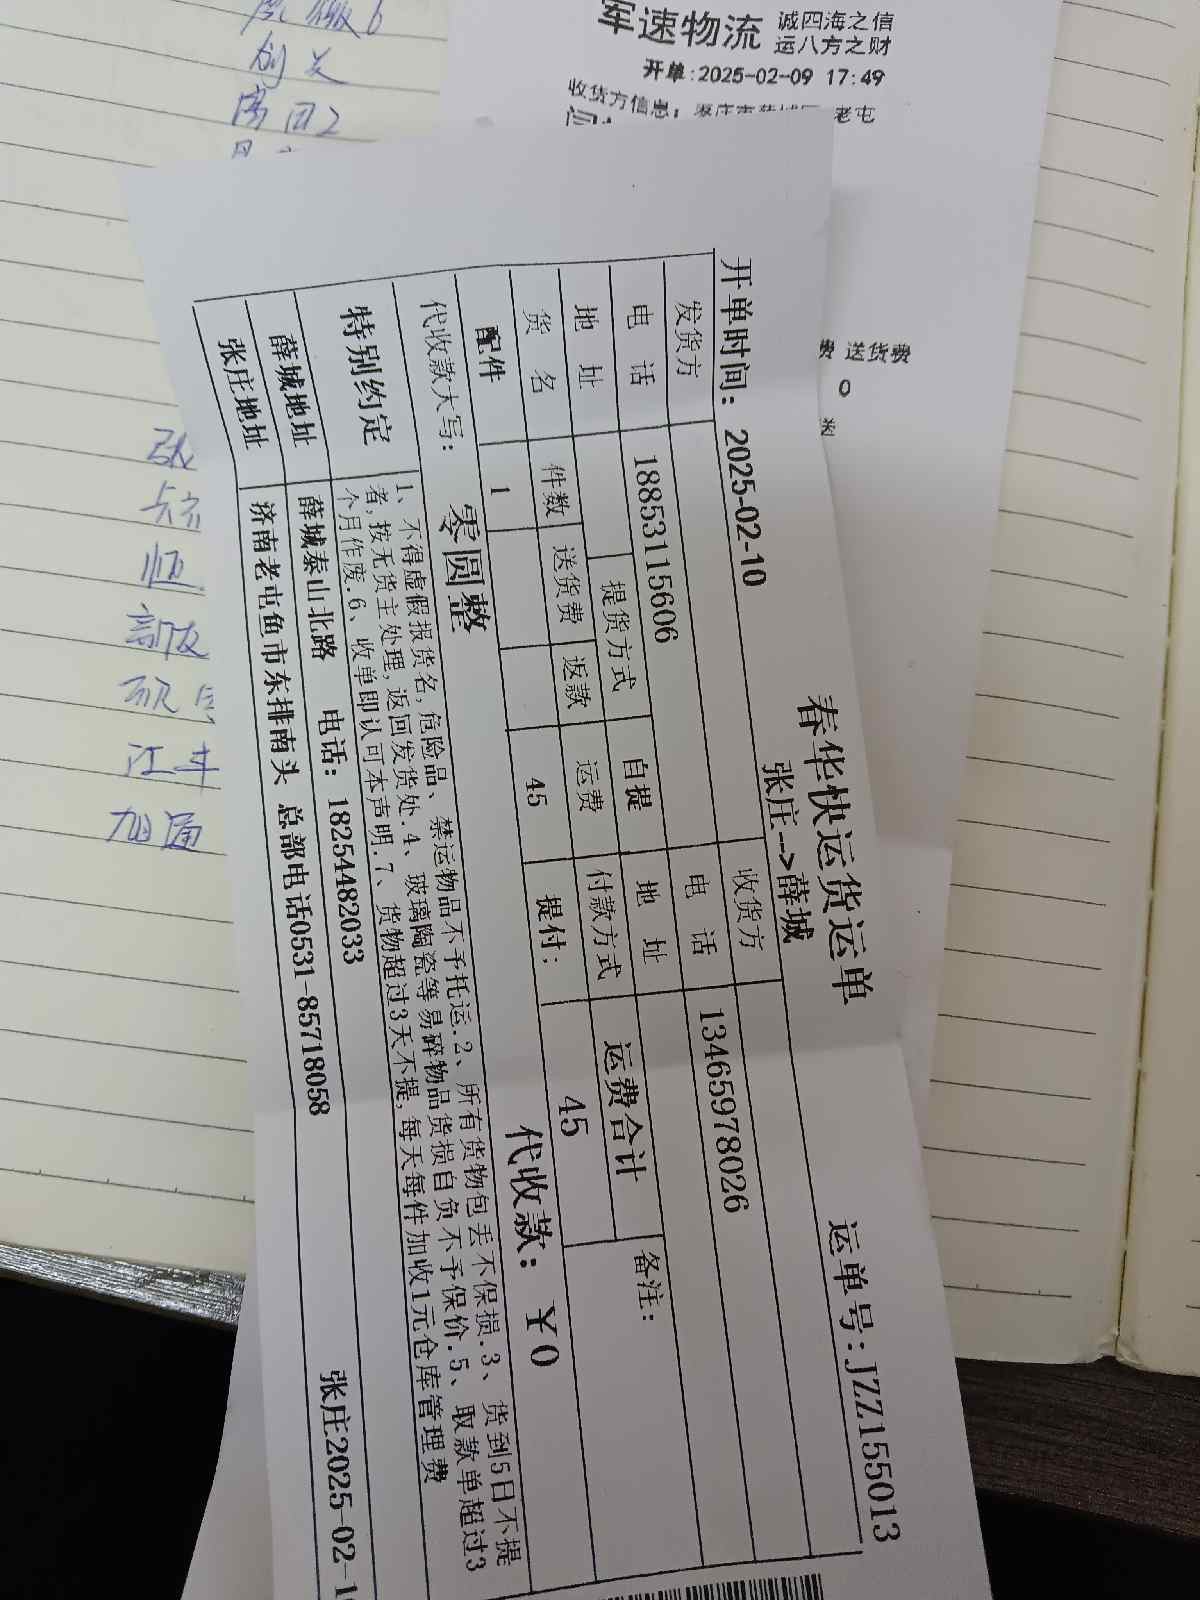 军速物流
诚四海之信
运八方之财
开单:2025-02-09 17:49
收货方信息:枣庄市薛城区 老屯
费 送货费
0
送
春华快运货运单
张庄-->薛城
开单时间: 2025-02-10
运单号:JZZ155013
发货方 收货方
电 话 18853115606 电 话 13465978026
地 址 提货方式 自提 地 址
货 名 件数 送货费 返款 运费 付款方式 运费合计 备注:
配件 1 45 提付: 45
代收款大写: 零圆整 代收款: ￥0
特别约定
1、不得虚假报货名,危险品、禁运物品不予托运.2、所有货物包丢不保损.3、货到5日不提
者,按无货主处理,返回发货处.4、玻璃陶瓷等易碎物品货损自负不予保价.5、取款单超过3
个月作废.6、收单即认可本声明.7、货物超过3天不提,每天每件加收1元仓库管理费
薛城地址 薛城泰山北路 电话: 18254482033
张庄地址 济南老屯鱼市东排南头 总部电话0531-85718058
张庄2025-02-1
张
江丰